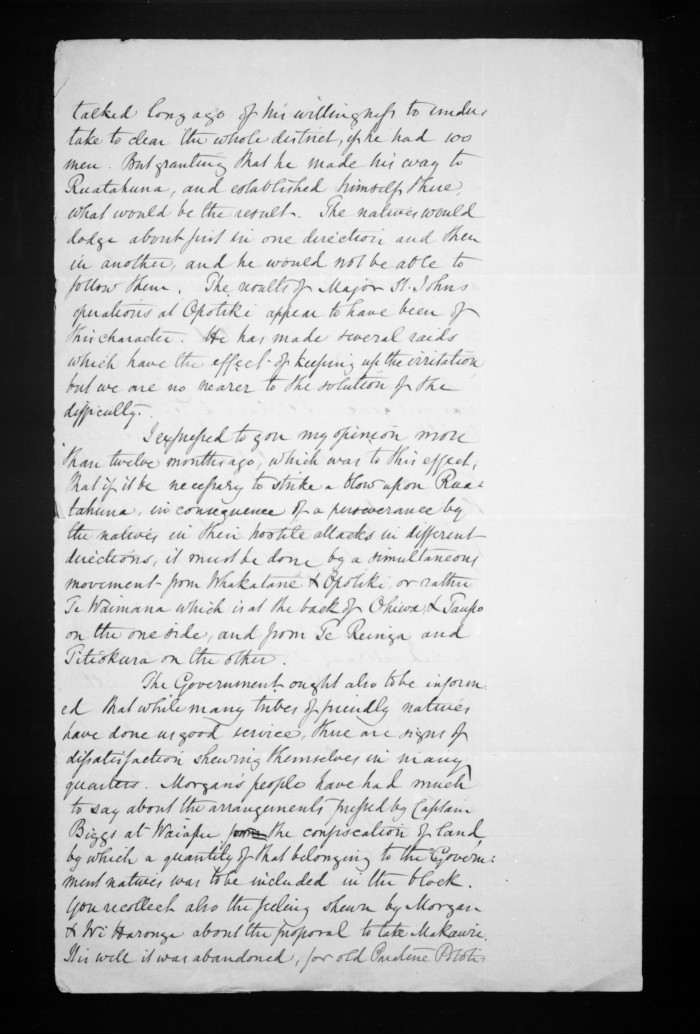 talked long ago of his willingness to under
take to clear the whole district, if he had 100
men. But granting that he made his way to
Ruatahuna, and established himself there,
what would be the result. The natives would
dodge about first in one direction and then
in another, and he would not be able to
follow them. The results of Major St. Johns
operations at Opotiki appear to have been of
this character. He has made several raids
which have the effect of keeping up the irritation
but we are no nearer to the solution of the
difficulty.
I expressed to you my opinion more
than twelve months ago, which was to this effect,
that if it be necessary to strike a blow upon Rua-
tahuna, in consequence of a perseverance by
the natives in their hostile attacks in different
directions, it must be done by a simultaneous
movement from Whakatane & Opotiki or rather
Te Waimana which is at the back of Ohiwa, & Taupo
on the one side, and from Te Reinga and
Titiokura on the other.
The Government ought also to be inform
ed that while many tribes of friendly natives
have done us good service, there are signs of
dissatisfaction shewing themselves in many
quarters. Morgan's people have had much
to say about the arrangements pressed by Captain
Biggs at Waiapu the confiscation of land,
by which a quantity of that belonging to the Govern:
ment natives was to be included in the block.
You recollect also the feeling shewn by Morgan
& Wi Haronga about the proposal to take Makauri.
It is well it was abandoned, for old